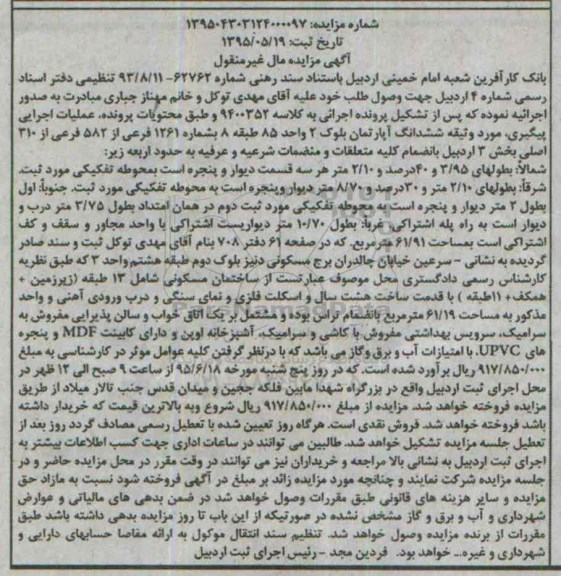 شماره مزایده: ۱۳۹۵۰۴۳۰۳۱۲۴۰۰۰۰۹۷
تاریخ ثبت: ۱۳۹۵/۰۵/۱۹
آگهی مزایده مال غیرمنقول
بانک کارآفرین شعبه امام خمینی اردبیل باستناد سند رهنی شماره ۶۲۷۶۲- ۹۳/۸/۱۱ تنظیمی دفتر اسناد
رسمی شماره ۴ اردبیل جهت وصول طلب خود علیه آقای مهدی توکل و خانم مهناز جباری مبادرت به صدور
اجرائیه نموده که پس از تشکیل پرونده اجرائی به کلاسه ۹۴۰۰۳۵۲ و طبق محتویات پرونده، عملیات اجرایی
پیگیری، مورد وثیقه ششدانگ آپارتمان بلوک ۲ واحد ۸۵ طبقه ۸ بشماره ۱۲۶۱ فرعی از ۵۸۲ فرعی از ۳۱۰
اصلی بخش ۳ اردبیل بانضمام کلیه متعلقات و منضمات شرعیه و عرفیه به حدود اربعه زیر:
شمالاً: بطولهای ۳/۹۵ و ۴۰درصد و ۲/۱۰ متر هر سه قسمت دیوار و پنجره است بمحوطه تفکیکی مورد ثبت.
شرقاً: بطولهای ۲/۱۰ متر و ۳۰درصد و ۸/۷۰ متر دیوار وپنجره است به محوطه تفکیکی مورد ثبت. جنوباً: اول
بطول ۲ متر دیوار و پنجره است به محوطه تفکیکی مورد ثبت دوم در همان امتداد بطول ۳/۷۵ متر درب و
دیوار است به راه پله اشتراکی. غرباً: بطول ۱۰/۷۰ متر دیواریست اشتراکی با واحد مجاور و سقف و کف
اشتراکی است بمساحت ۶۱/۹۱ مترمربع. که در صفحه ۶۱ دفتر ۷۰۸ بنام آقای مهدی توکل ثبت و سند صادر
گردیده به نشانی - سرعین خیابان چالدران برج مسکونی دنیز بلوک دوم طبقه هشتم واحد ۳ که طبق نظریه
کارشناس رسمی دادگستری محل موصوف عبارتست از ساختمان مسکونی شامل ۱۳ طبقه (زیرزمین +
همکف+ ۱۱طبقه ) با قدمت ساخت هشت سال و اسکلت فلزی و نمای سنگی و درب ورودی آهنی و واحد
مذکور به مساحت ۶۱/۱۹ مترمربع بانضمام تراس بوده و مشتمل بر یک اتاق خواب و سالن پذیرایی مفروش به
سرامیک، سرویس بهداشتی مفروش با کاشی و سرامیک، آشپزخانه اوپن و دارای کابینت MDF و پنجره
های UPVC، با امتیازات آب و برق وگاز می باشد که با درنظر گرفتن کلیه عوامل موثر در کارشناسی به مبلغ
۹۱۷/۸۵۰/۰۰۰ ریال برآورد شده است. که در روز پنج شنبه مورخه ۹۵/۶/۱۸ از ساعت ۹ صبح الی ۱۲ ظهر در
محل اجرای ثبت اردبیل واقع در بزرگراه شهدا مابین فلکه ججین و میدان قدس جنب تالار میلاد از طریق
مزایده فروخته خواهد شد. مزایده از مبلغ ۹۱۷/۸۵۰/۰۰۰ ریال شروع وبه بالاترین قیمت که خریدار داشته
باشد فروخته خواهد شد. فروش نقدی است. هرگاه روز تعیین شده با تعطیل رسمی مصادف گردد روز بعد از
تعطیل جلسه مزایده تشکیل خواهد شد. طالبین می توانند در ساعات اداری جهت کسب اطلاعات بیشتر به
اجرای ثبت اردبیل به نشانی بالا مراجعه و خریداران نیز می توانند در وقت مقرر در محل مزایده حاضر و در
جلسه مزایده شرکت نمایند و چنانچه مورد مزایده زائد بر مبلغ در آگهی فروخته شود نسبت به مازاد حق
مزایده و سایر هزینه های قانونی طبق مقررات وصول خواهد شد در ضمن بدهی های مالیاتی و عوارض
شهرداری و آب و برق و گاز مشخص نشده در صورتیکه از این باب تا روز مزایده بدهی داشته باشد طبق
مقررات از برنده مزایده وصول خواهد شد. تنظیم سند انتقال موکول به ارائه مفاصا حسابهای دارایی و
شهرداری و غیره... خواهد بود. فردین مجد - رئیس اجرای ثبت اردبیل